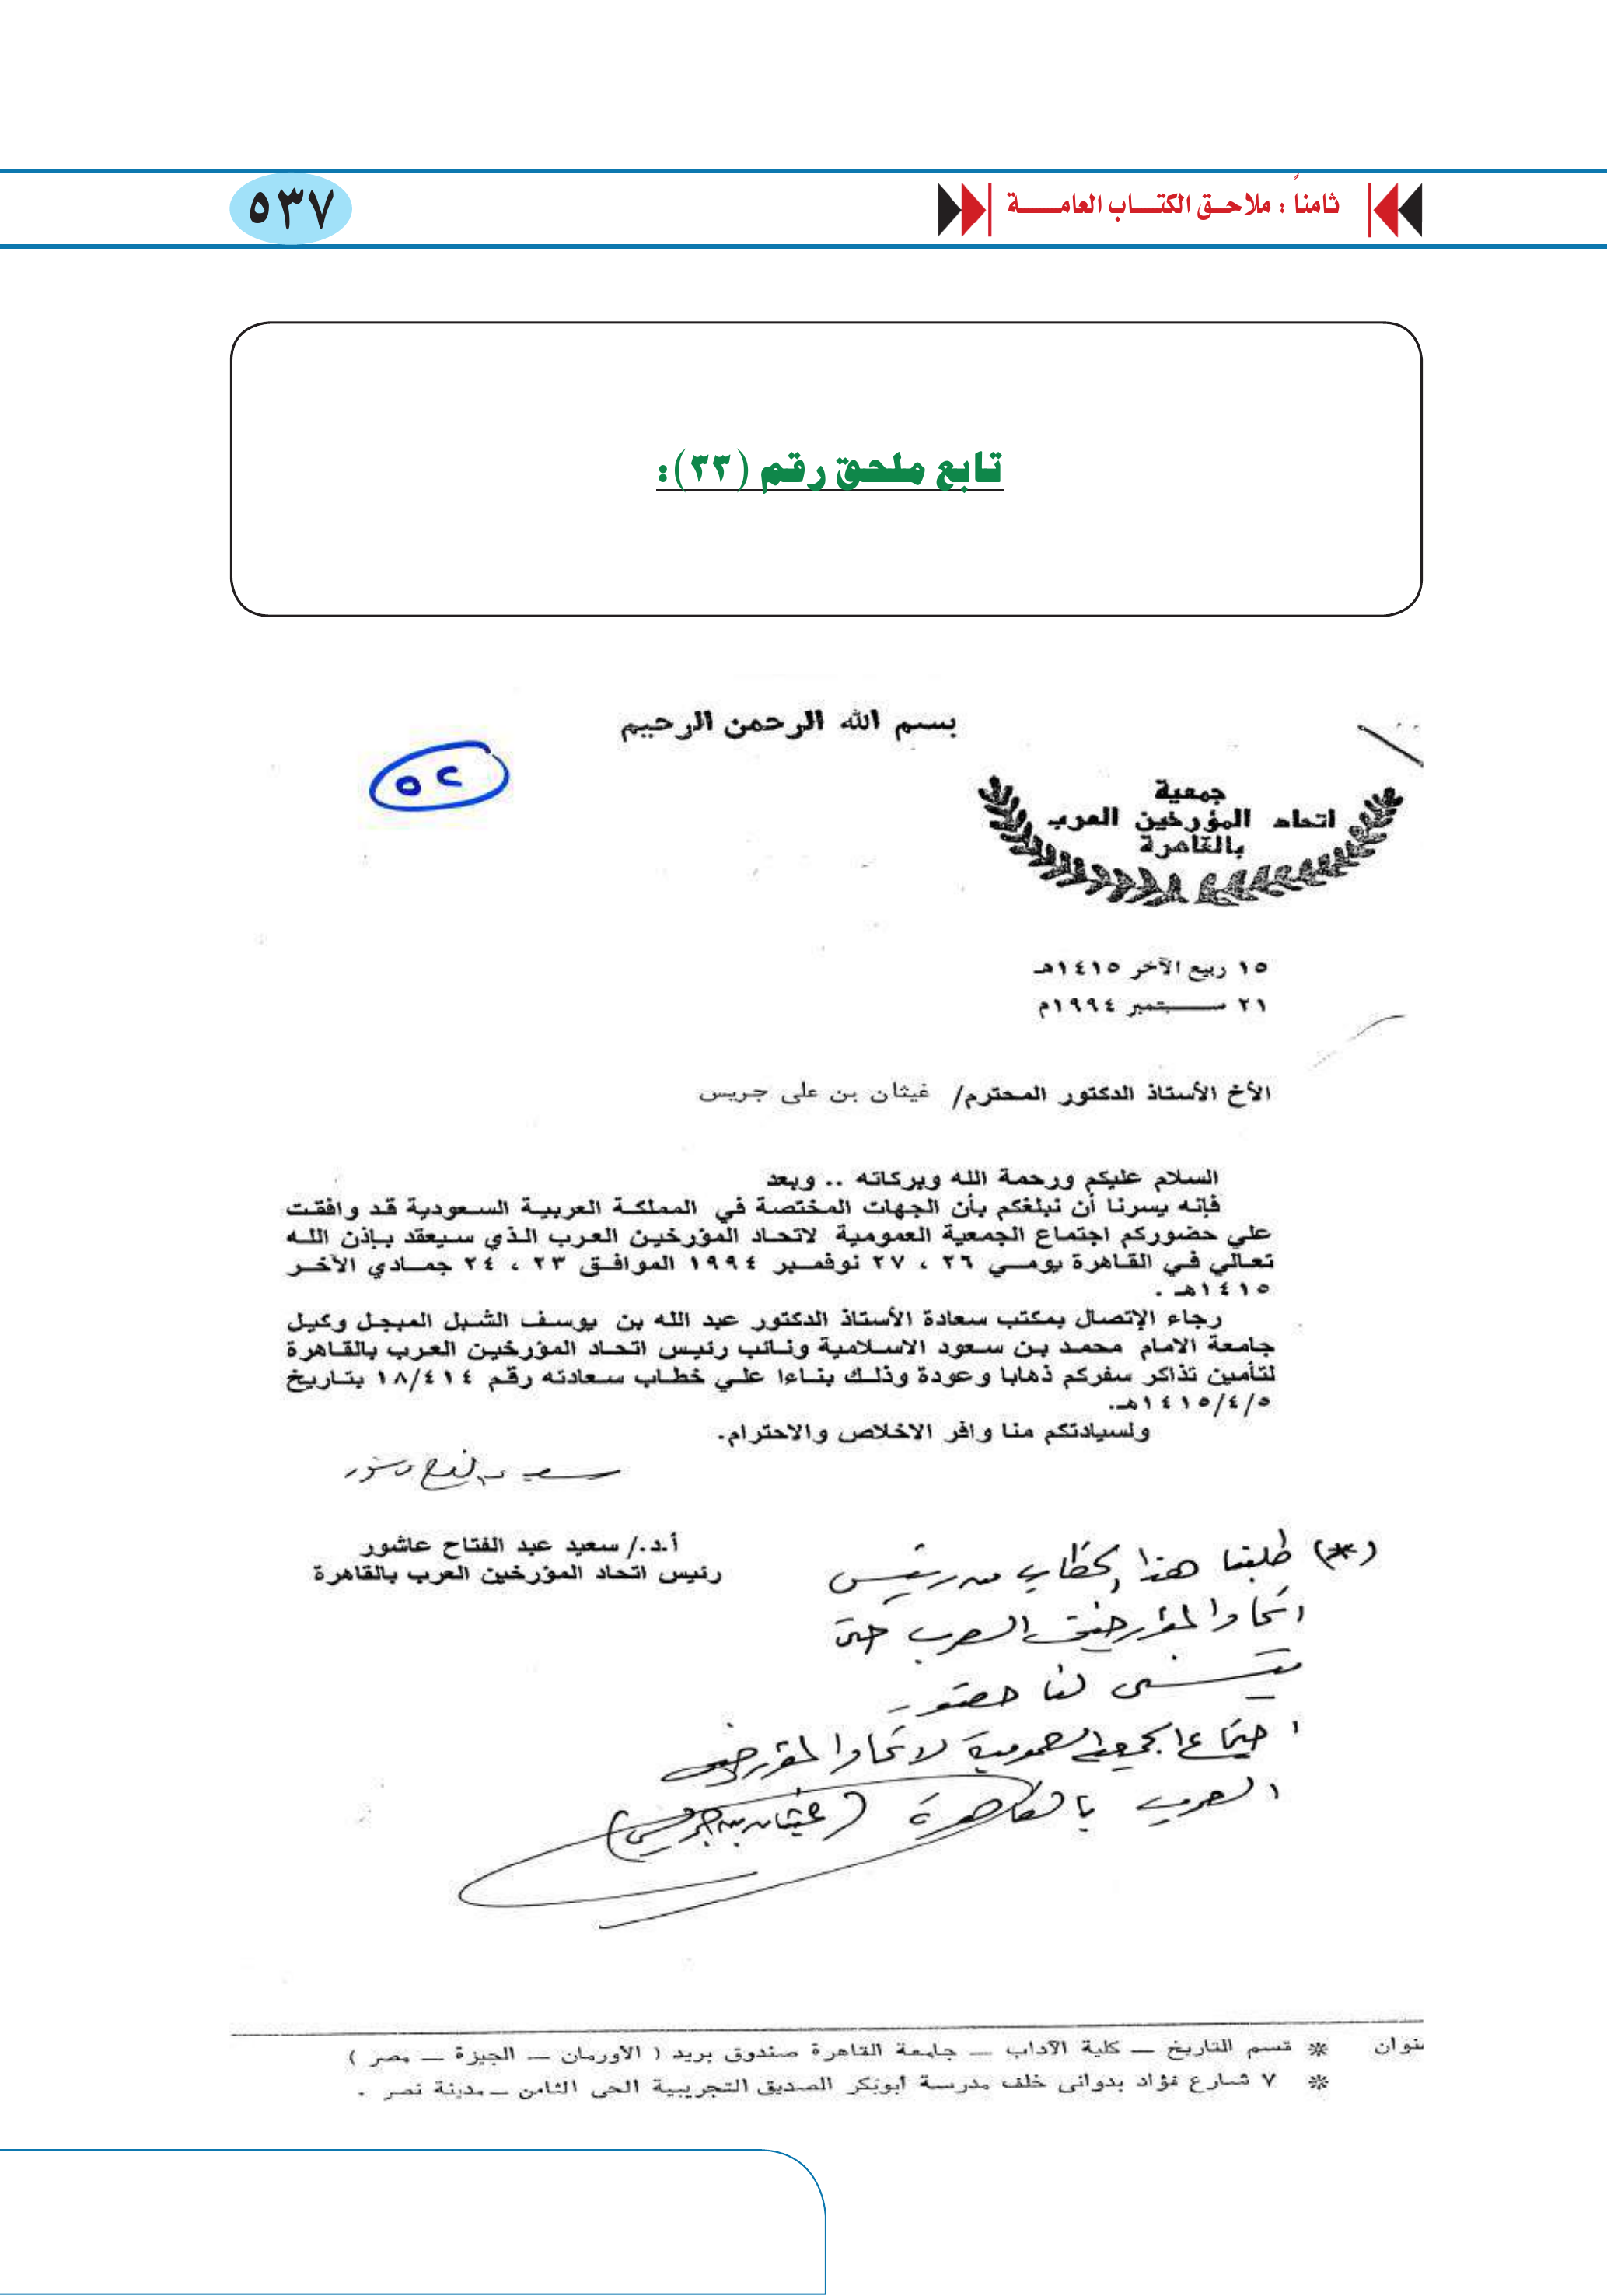 ثامناً : ملاحـق الكتـــاب العامـــــة
٥٣٧
تابع ملحق رقم (٣٣):
بسم الله الرحمن الرحيم
٥٢
جمعية
اتحاد المؤرخين العرب
بالقاهرة
١٥ ربيع الآخر ١٤١٥هـ
٢١ ســـــبتمبر ١٩٩٤م
الأخ الأستاذ الدكتور المحترم/ غيثان بن على جريس
السلام عليكم ورحمة الله وبركاته .. وبعد
فإنه يسرنا أن نبلغكم بأن الجهات المختصة في المملكة العربية السعودية قد وافقت
علي حضوركم اجتماع الجمعية العمومية لاتحاد المؤرخين العرب الذي سيعقد بإذن الله
تعالي في القاهرة يومي ٢٦ ، ٢٧ نوفمبر ١٩٩٤ الموافق ٢٣ ، ٢٤ جمادي الآخر
١٤١٥هـ .
رجاء الإتصال بمكتب سعادة الأستاذ الدكتور عبد الله بن يوسف الشبل المبجل وكيل
جامعة الامام محمد بن سعود الاسلامية ونائب رئيس اتحاد المؤرخين العرب بالقاهرة
لتأمين تذاكر سفركم ذهابا وعودة وذلك بناءا علي خطاب سعادته رقم ١٨/٤١٤ بتاريخ
١٤١٥/٤/٥هـ.
ولسيادتكم منا وافر الاخلاص والاحترام.
سعيد عبد الفتاح عاشور
أ.د./ سعيد عبد الفتاح عاشور
رئيس اتحاد المؤرخين العرب بالقاهرة
(*) طلبنا هذا الخطاب من رئيس
اتحاد المؤرخين العرب حتى
يتسنى لنا حضور
اجتماع الجمعية العمومية لاتحاد المؤرخين
العرب بالقاهرة (غيثان بن جريس)
عنوان * قسم التاريخ ــ كلية الآداب ــ جامعة القاهرة صندوق بريد ( الأورمان ــ الجيزة ــ مصر )
* ٧ شارع فؤاد بدوانى خلف مدرسة أبوبكر الصديق التجريبية الحى الثامن ــ مدينة نصر .